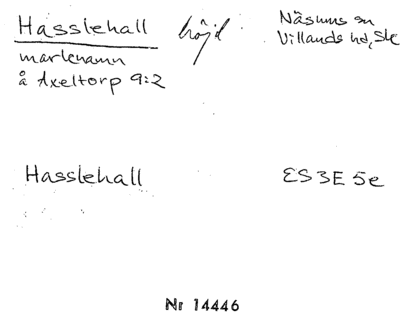 Hasslehall höjd Näsums sn
Villands hd, Sk
marknamn
å Axeltorp 9:2
Hasslehall ES 3E 5e
Nr 14446